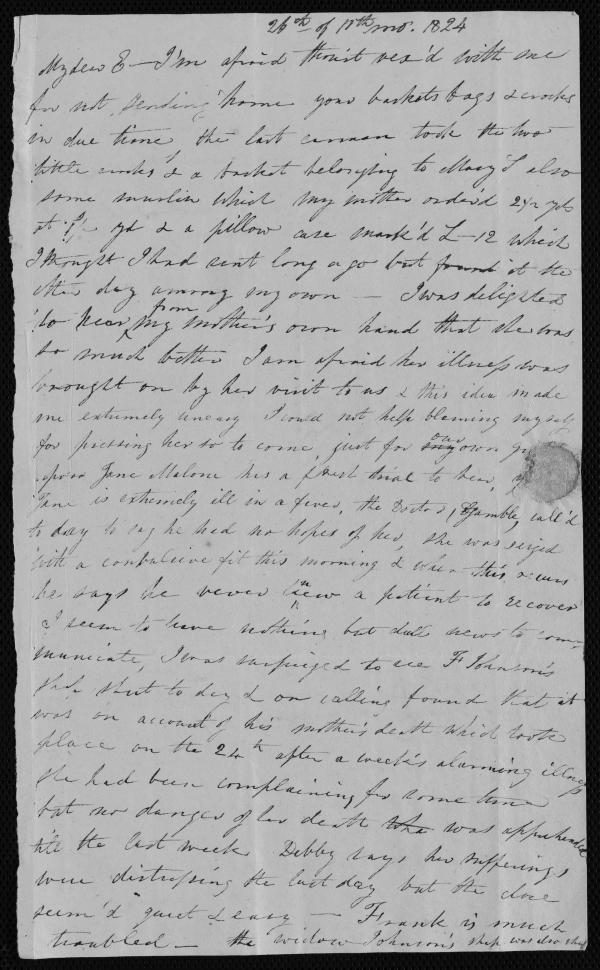 26th of 11th mo. 1824
My dear E — I'm afraid thou'rt vex'd with me
for not sending home your baskets bags & crocks
in due time, the last carman took the two
little crocks & a basket belonging to Mary L also
some muslin which my mother order'd 2½ yds
at 1/- yd & a pillow case mark'd L-12 which
I thought I had sent long ago but found it the
other day among my own — I was delighted
to hear from my mother's own hand that she was
so much better I am afraid her illness was
brought on by her visit to us & this idea made
me extremely uneasy I could not help blaming myself
for pressing her so to come, just for our own
poor Jane Malone has a great trial to bear,
Jane is extremely ill in a fever, the Doctor, Gamble, call'd
to day to say he had no hopes of her, she was seized
with a convulsive fit this morning & when this occurs
he says he never knew a patient to recover
I seem to have nothing but dull news to com-
municate, I was surprized to see F Johnson's
shop shut to day & on calling found that it
was on account of his mother's death which took
place on the 24th after a week's alarming illness
She had been complaining for some time
but no danger of her death was apprehended
till the last week Debby says her sufferings
were distressing the last day but the close
seem'd quiet & easy — Frank is much
troubled — the widow Johnson's shop was also shut